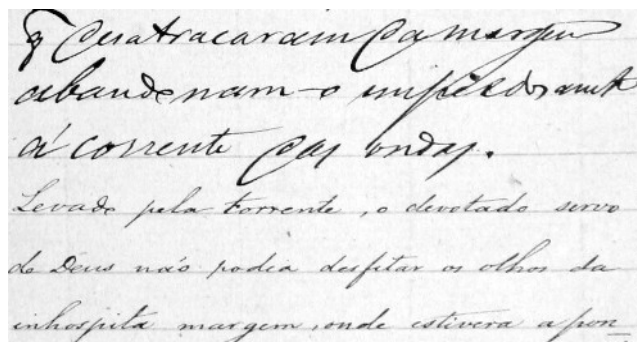 desatracaram da margem
abandonam-o impiedosamente
á corrente das ondas.
Levado pela torrente, o devotado servo
de Deus não podia desfitar os olhos da
inhospita margem, onde estivera a pon_